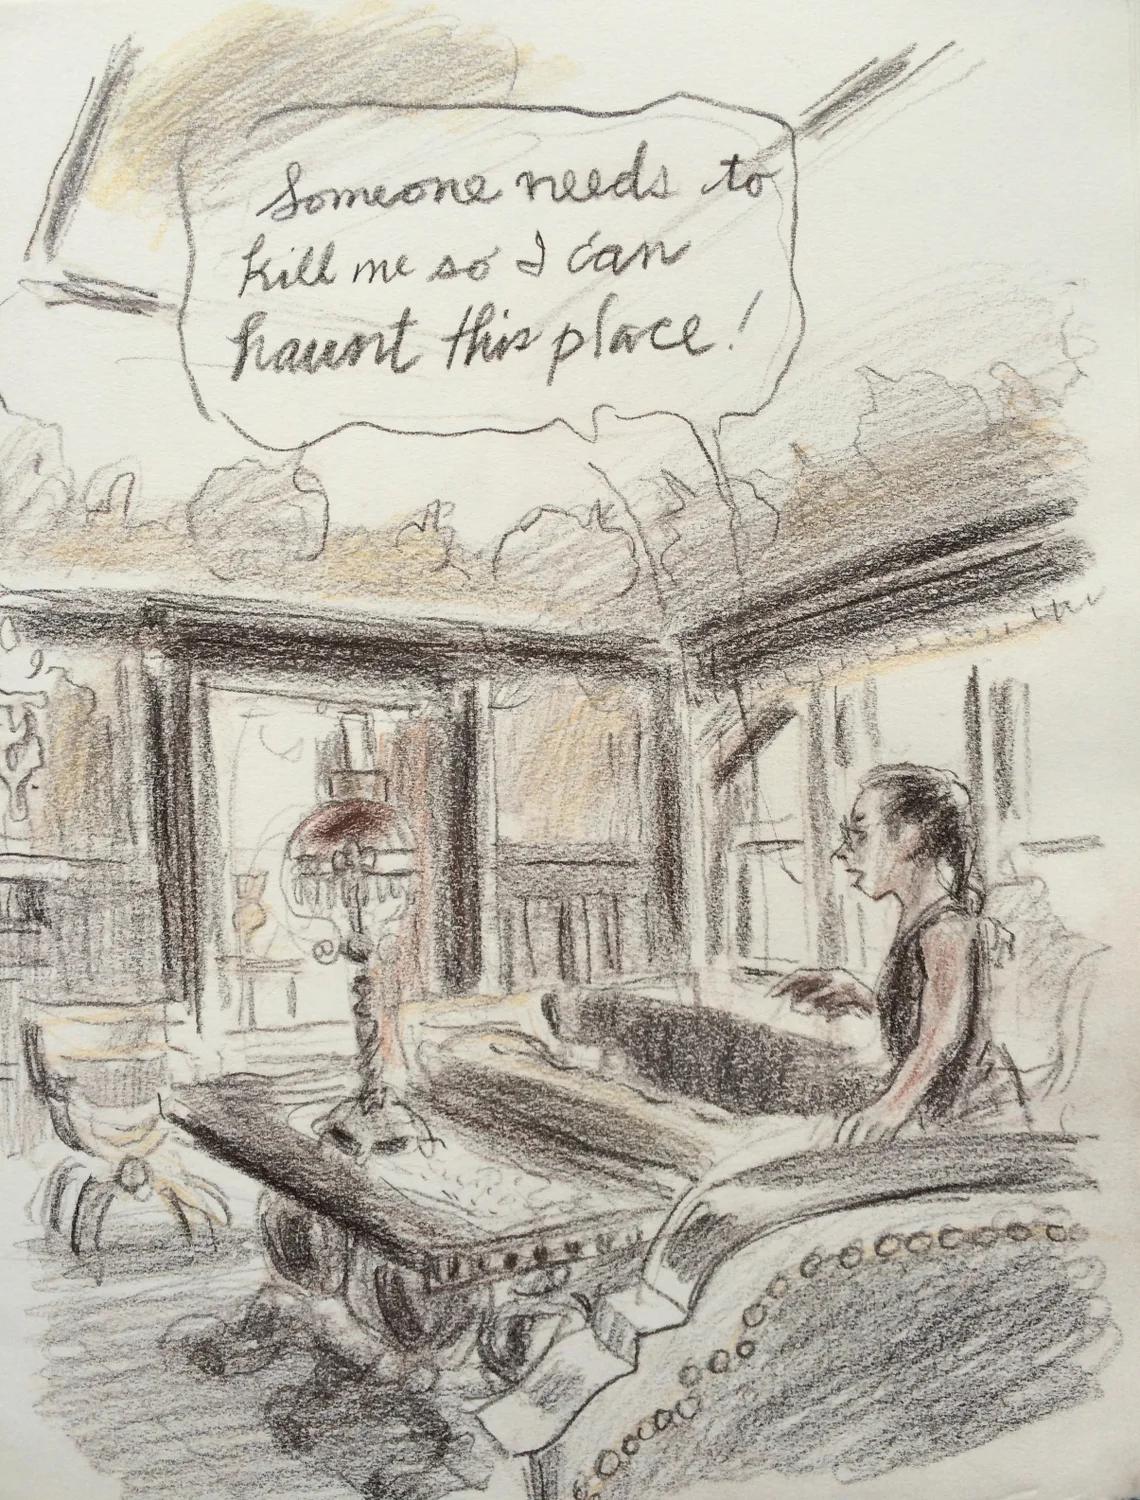 Someone needs to
kill me so I can
haunt this place!